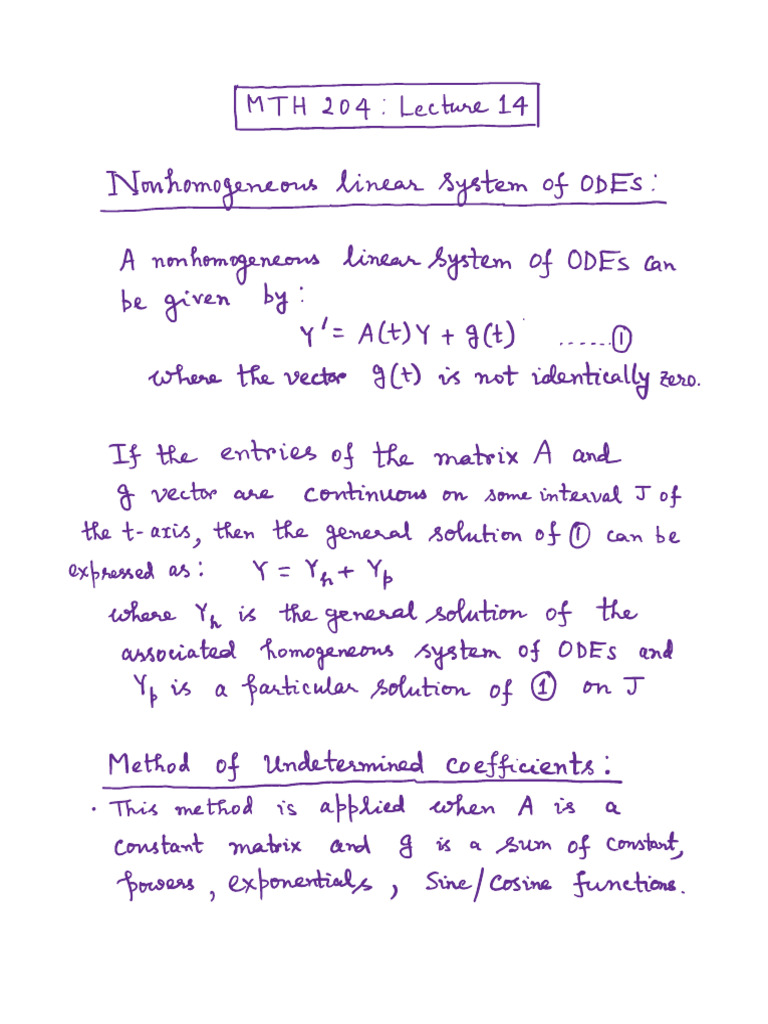 MTH 204: Lecture 14
Nonhomogeneous linear system of ODEs:
A nonhomogeneous linear system of ODEs can
be given by:
Y' = A(t)Y + g(t) ......①
where the vector g(t) is not identically zero.
If the entries of the matrix A and
g vector are continuous on some interval J of
the t-axis, then the general solution of ① can be
expressed as: Y = Yₕ + Yₚ
where Yₕ is the general solution of the
associated homogeneous system of ODEs and
Yₚ is a particular solution of ① on J
Method of Undetermined coefficients:
· This method is applied when A is a
constant matrix and g is a sum of constant,
powers, exponentials, Sine/Cosine functions.